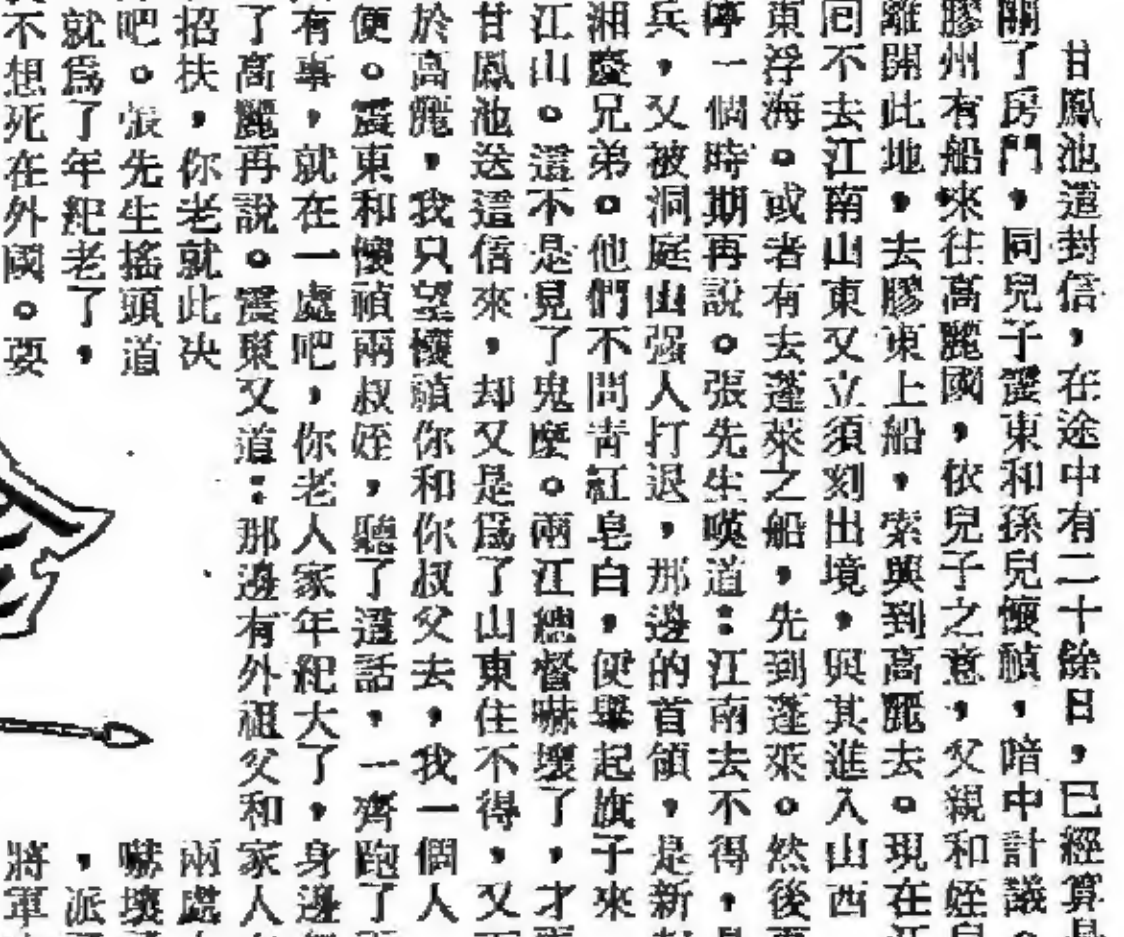 甘鳳池這封信，在途中有二十餘日，已經算是
關了房門，同兒子震東和孫兒懷禎，暗中計議。
膠州有船來往高麗國，依兒子之意，父親和姪兒
離開此地，去膠東上船，索興到高麗去。現在江
囘不去江南山東又立須刻出境，與其進入山西
東浮海。或者有去蓬萊之船，先到蓬萊。然後再
停一個時期再說。張先生嘆道：江南去不得，是
兵，又被洞庭山强人打退，那邊的首領，是新
湘慶兄弟。他們不問青紅皂白，便舉起旗子來
江山。這不是見了鬼麽。兩江總督嚇壞了，才
甘鳳池送這信來，却又是爲了山東住不得，又
於高麗，我只望懷禎你和你叔父去，我一個人
便。震東和懷禎兩叔姪，聽了這話，一齊跑了
有事，就在一處吧，你老人家年紀大了，身邊
了高麗再說。震東又道：那邊有外祖父和家人
招扶，你老就此决
吧。張先生搖頭道
就爲了年紀老了，
不想死在外國。要
兩處
嚇壞
，派
將軍